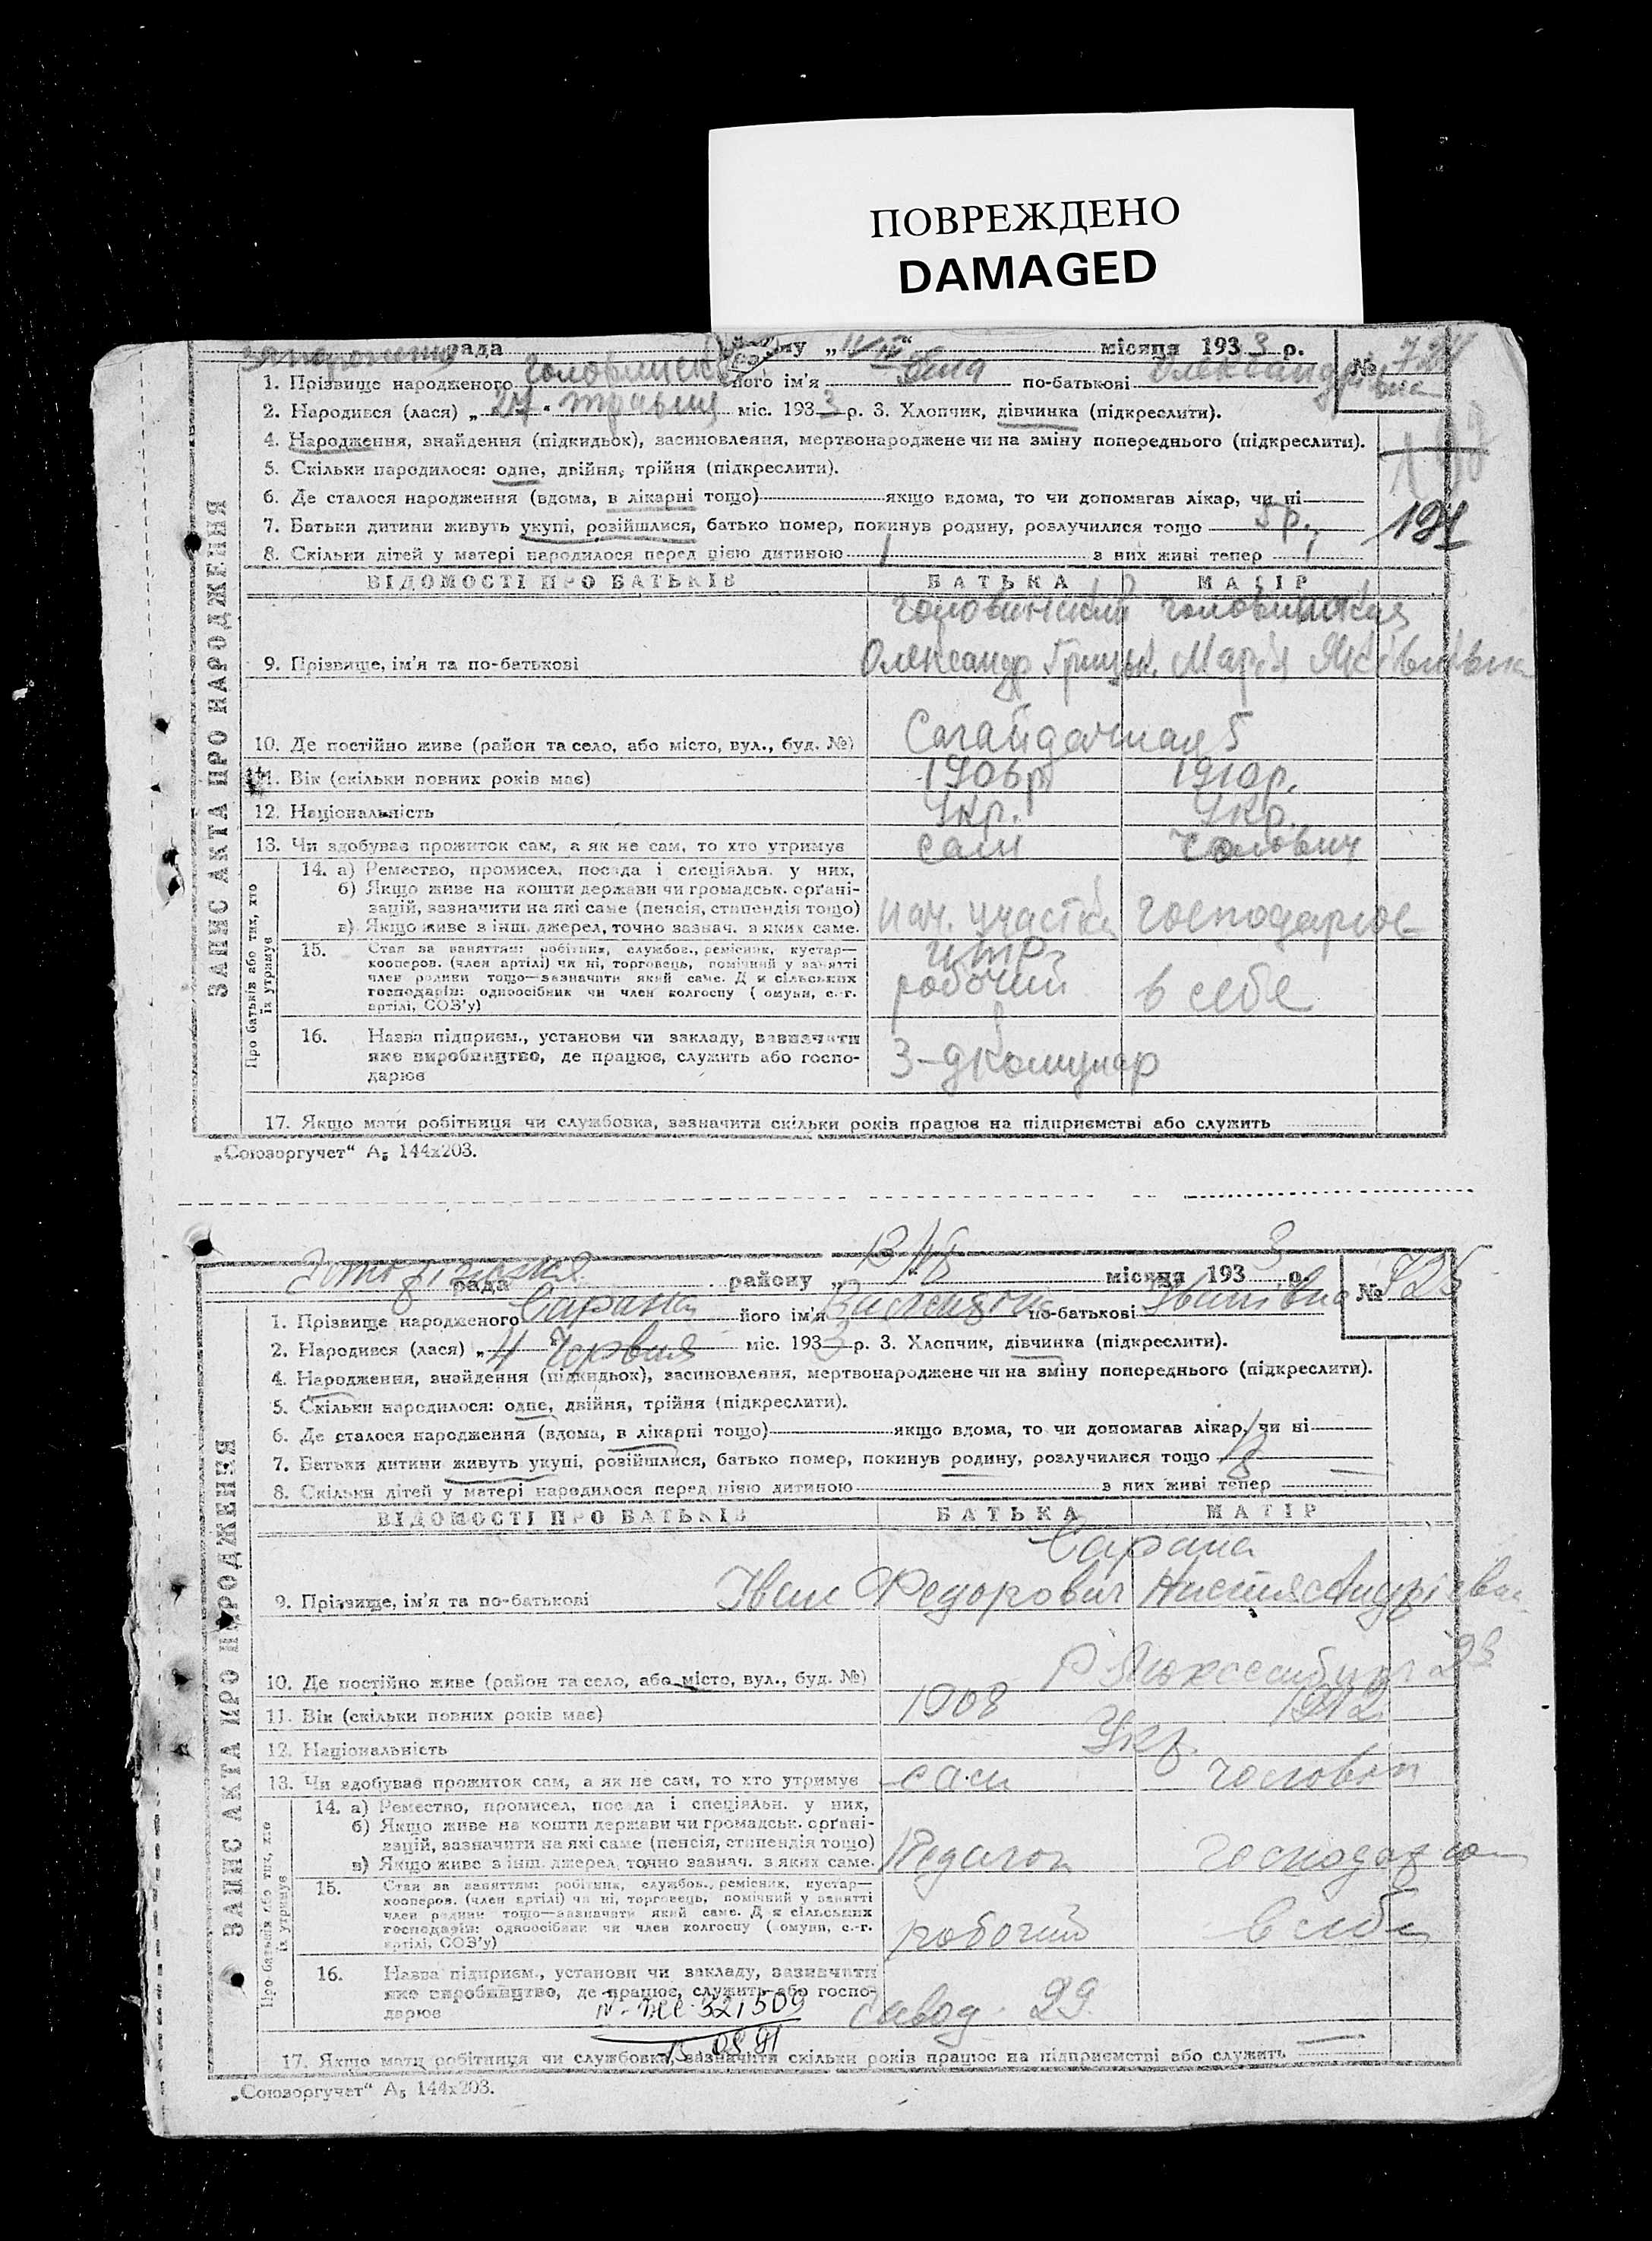 ПОВРЕЖДЕНО
DAMAGED
рада „ “ місяця 1933 р. № 724
1. Прізвище народженого його ім'я по-батькові Олександрівна
2. Народився (лася) „27“ травня міс. 1933 р. 3. Хлопчик, дівчинка (підкреслити).
4. Народження, знайдення (підкидьок), засиновлення, мертвонароджене чи на зміну попереднього (підкреслити).
5. Скільки народилося: одне, двійня, трійня (підкреслити).
6. Де сталося народження (вдома, в лікарні тощо) якщо вдома, то чи допомагав лікар, чи ні
7. Батьки дитини живуть укупі, розійшлися, батько помер, покинув родину, розлучилися тощо 5 р.
191
8. Скільки дітей у матері народилося перед цією дитиною 1 з них живі тепер 1
ЗАПИС АКТА ПРО НАРОДЖЕННЯ
ВІДОМОСТІ ПРО БАТЬКІВ БАТЬКА МАТІР
Головинский Головинская
9. Прізвище, ім'я та по-батькові Олександр Григ. Марія Яківлівна
10. Де постійно живе (район та село, або місто, вул., буд. №) Сагайдачная 5
11. Вік (скільки повних років має) 1906р 1910р.
12. Національність Укр. Укр.
13. Чи здобуває прожиток сам, а як не сам, то хто утримує сам чоловик
Про батьків або тих, хто їх утримує
14. а) Ремество, промисел, посада і спеціяльн. у них,
б) Якщо живе на кошти держави чи громадськ. орґані-
зацій, зазначити на які саме (пенсія, стипендія тощо)
в) Якщо живе з інш. джерел, точно зазнач. з яких саме. нач. участка господарює
15. Стан за заняттям: робітник, службов., ремісник, кустар—
кооперов. (член артілі) чи ні, торговець, помічний у занятті
член родини тощо—зазначити який саме. Для сільських
господарів: одноосібник чи член колгоспу (комуни, с.-г.
артілі, СОЗ'у) робочий в себе
16. Назва підприєм., установи чи закладу, зазначити
яке виробництво, де працює, служить або госпо-
дарює З-д Комунар
17. Якщо мати робітниця чи службовка, зазначити скільки років працює на підприємстві або служить
„Союзоргучет“ А5 144х203.
рада району „13/VI“ місяця 1933 р. № 725
1. Прізвище народженого Сарана його ім'я Валентина по-батькові Іванівна
2. Народився (лася) „4“ Червня міс. 1933 р. 3. Хлопчик, дівчинка (підкреслити).
4. Народження, знайдення (підкидьок), засиновлення, мертвонароджене чи на зміну попереднього (підкреслити).
5. Скільки народилося: одне, двійня, трійня (підкреслити).
6. Де сталося народження (вдома, в лікарні тощо) якщо вдома, то чи допомагав лікар, чи ні
7. Батьки дитини живуть укупі, розійшлися, батько помер, покинув родину, розлучилися тощо
8. Скільки дітей у матері народилося перед цією дитиною з них живі тепер
ЗАПИС АКТА ПРО НАРОДЖЕННЯ
ВІДОМОСТІ ПРО БАТЬКІВ БАТЬКА МАТІР
Сарана
9. Прізвище, ім'я та по-батькові Іван Федорович Настя Андріївна
10. Де постійно живе (район та село, або місто, вул., буд. №) Р. Люксембург 23
11. Вік (скільки повних років має) 1908 1912
12. Національність Укр.
13. Чи здобуває прожиток сам, а як не сам, то хто утримує сам чоловік
Про батьків або тих, хто їх утримує
14. а) Ремество, промисел, посада і спеціяльн. у них,
б) Якщо живе на кошти держави чи громадськ. орґані-
зацій, зазначити на які саме (пенсія, стипендія тощо)
в) Якщо живе з інш. джерел, точно зазнач. з яких саме. Педагог
15. Стан за заняттям: робітник, службов., ремісник, кустар—
кооперов. (член артілі) чи ні, торговець, помічний у занятті
член родини тощо—зазначити який саме. Для сільських
господарів: одноосібник чи член колгоспу (комуни, с.-г.
артілі, СОЗ'у) робочий в себе
16. Назва підприєм., установи чи закладу, зазначити
яке виробництво, де працює, служить або госпо-
дарює 321509 завод 29
17. Якщо мати робітниця чи службовка, зазначити скільки років працює на підприємстві або служить
„Союзоргучет“ А5 144х203.